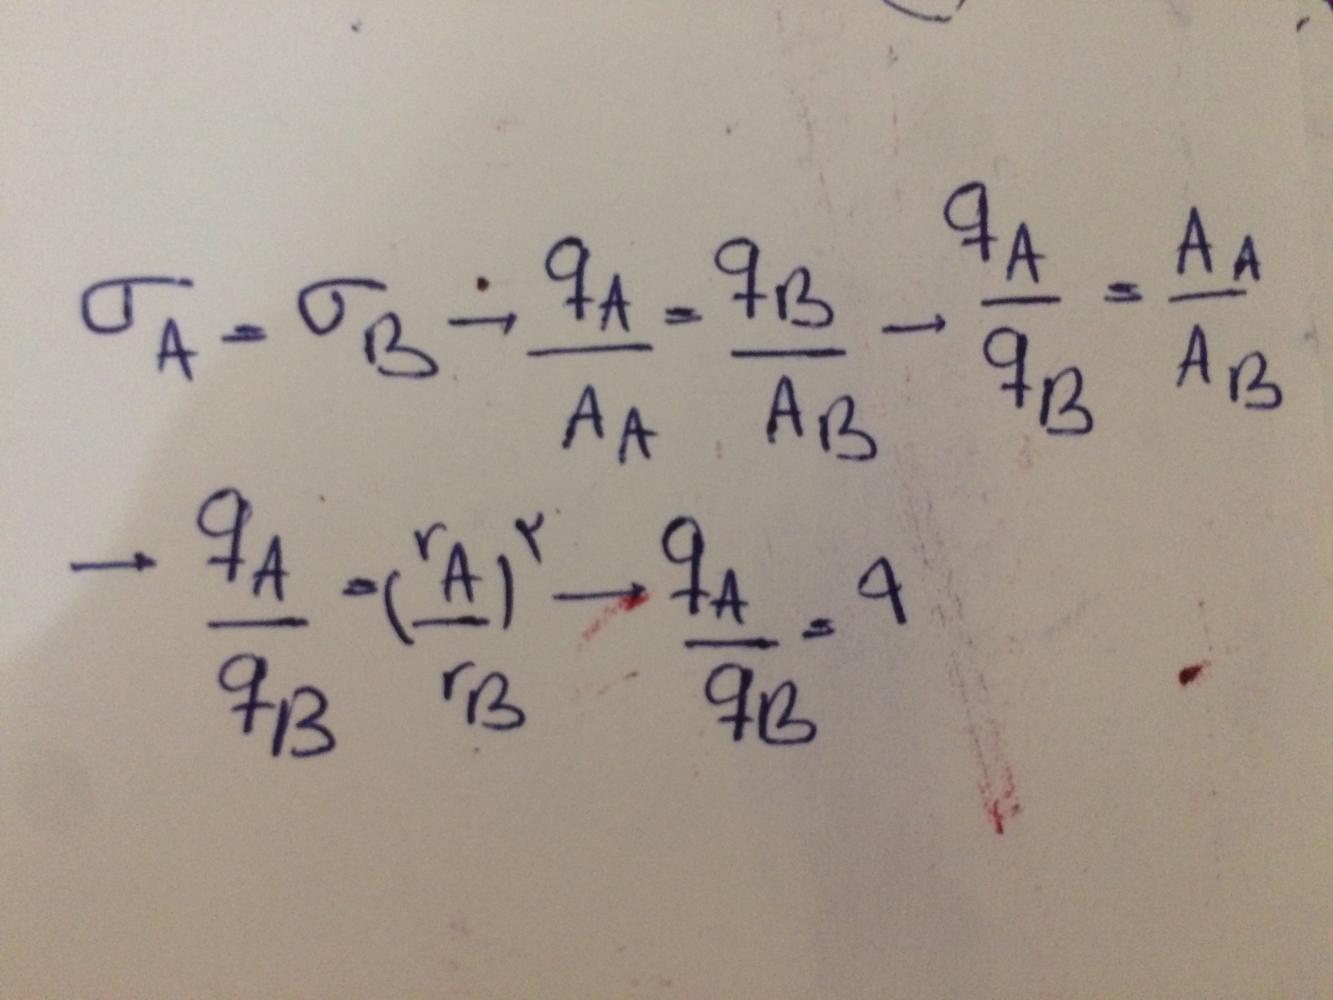 σ_A = σ_B → q_A / A_A = q_B / A_B → q_A / q_B = A_A / A_B
→ q_A / q_B = (r_A / r_B)^۲ → q_A / q_B = ۹